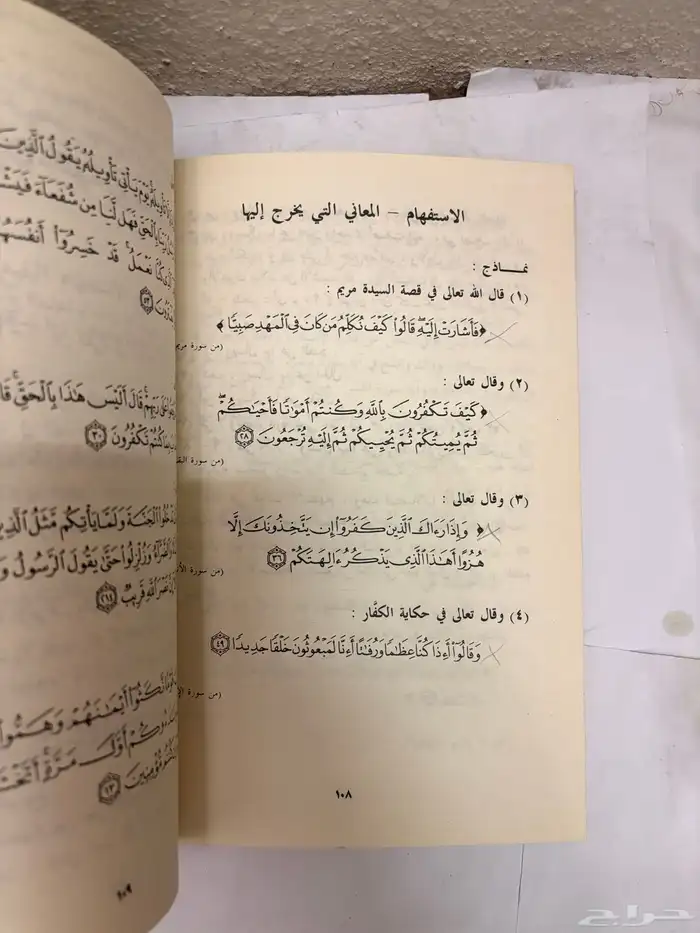 الاستفهام – المعاني التي يخرج إليها
نمــاذج :
(١) قال الله تعالى في قصة السيدة مريم :
﴿فَأَشَارَتْ إِلَيْهِ ۖ قَالُوا۟ كَيْفَ نُكَلِّمُ مَن كَانَ فِى ٱلْمَهْدِ صَبِيًّا﴾
(من سورة مريم
(٢) وقال تعالى :
﴿كَيْفَ تَكْفُرُونَ بِٱللَّهِ وَكُنتُمْ أَمْوَٰتًا فَأَحْيَـٰكُمْ ۖ
ثُمَّ يُمِيتُكُمْ ثُمَّ يُحْيِيكُمْ ثُمَّ إِلَيْهِ تُرْجَعُونَ ٢٨
(من سورة
(٣) وقال تعالى :
﴿وَإِذَا رَءَاكَ ٱلَّذِينَ كَفَرُوٓا۟ إِن يَتَّخِذُونَكَ إِلَّا
هُزُوًا أَهَـٰذَا ٱلَّذِى يَذْكُرُ ءَالِهَتَكُمْ ٣٦
(من سورة
(٤) وقال تعالى في حكاية الكفَّار :
وَقَالُوٓا۟ أَءِذَا كُنَّا عِظَـٰمًا وَرُفَـٰتًا أَءِنَّا لَمَبْعُوثُونَ خَلْقًا جَدِيدًا ٤٩
(من سورة
١٠٨
تَأْوِيلَهُۥ ۚ يَوْمَ يَأْتِى تَأْوِيلُهُۥ يَقُولُ ٱلَّذِينَ
بِٱلْحَقِّ فَهَل لَّنَا مِن شُفَعَآءَ
نَعْمَلُ ۚ قَدْ خَسِرُوٓا۟ أَنفُسَهُمْ
٥٣
عَلَىٰ رَبِّهِمْ ۚ قَالَ أَلَيْسَ هَـٰذَا بِٱلْحَقِّ ۚ
كُنتُمْ تَكْفُرُونَ ٣٠
ٱلْجَنَّةَ وَلَمَّا يَأْتِكُم مَّثَلُ ٱلَّذِينَ
وَزُلْزِلُوا۟ حَتَّىٰ يَقُولَ ٱلرَّسُولُ
نَصْرَ ٱللَّهِ قَرِيبٌ ٢١٤
نَّكَثُوٓا۟ أَيْمَـٰنَهُمْ وَهَمُّوا۟
أَوَّلَ مَرَّةٍ ۚ
مُّؤْمِنِينَ ١٣
١٠٩
حراج